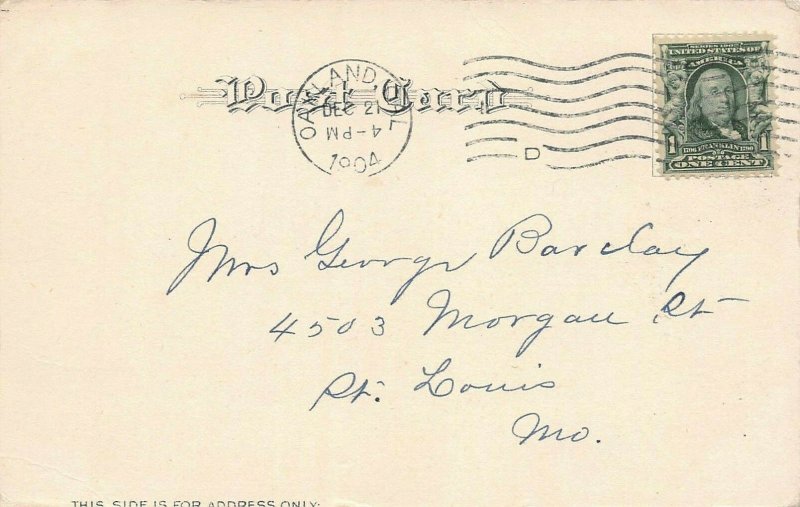 Post Card
OAKLAND, CAL
DEC 21
4-PM
1904
D
SERIES 1902
UNITED STATES OF
AMERICA
1 1706 FRANKLIN 1790 1
POSTAGE
ONE CENT
Mrs George Barclay
4503 Morgan St
St. Louis
Mo.
THIS SIDE IS FOR ADDRESS ONLY: